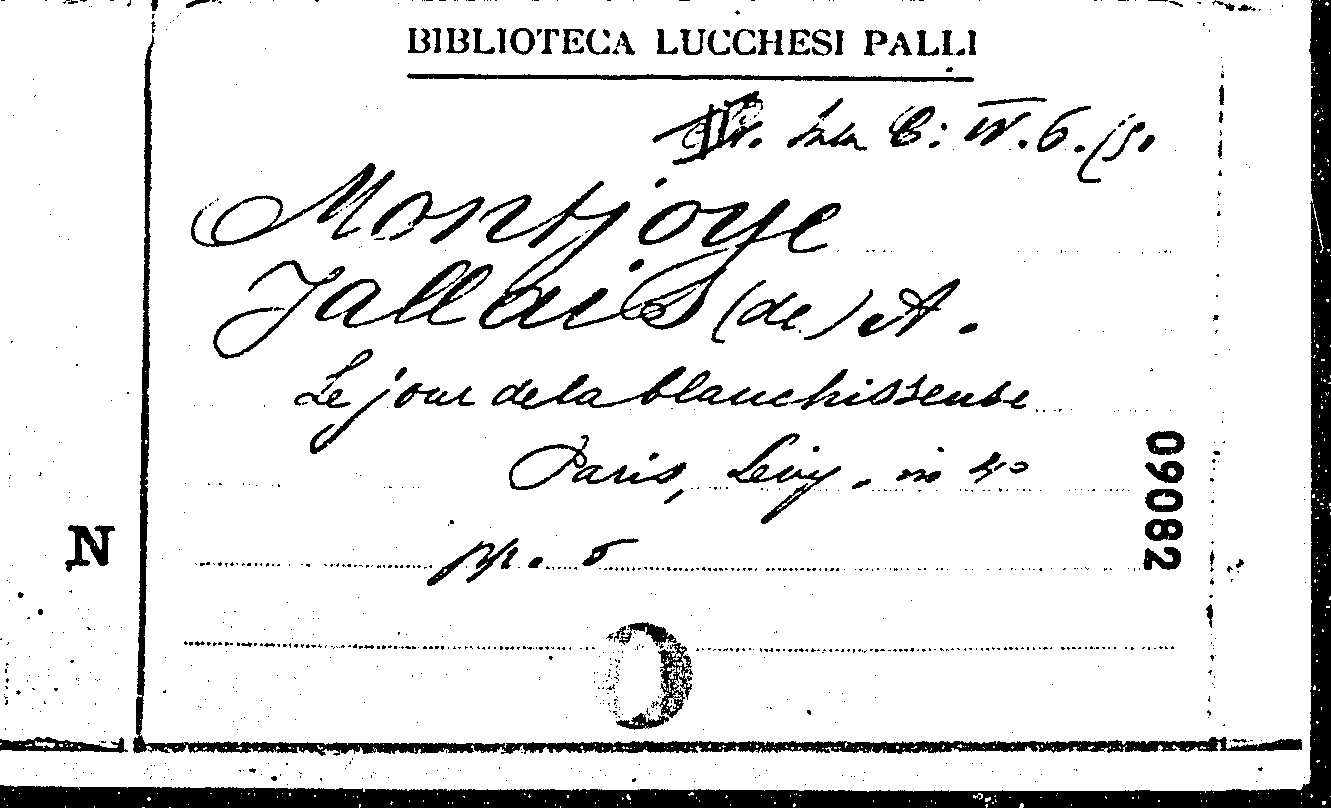 BIBLIOTECA LUCCHESI PALLI
B: IV. 6. (5.
Montjoye
Jallais (de) A.
Le jour de la blanchisseuse
Paris, Levy. in 4°
pp. 5
N
09082